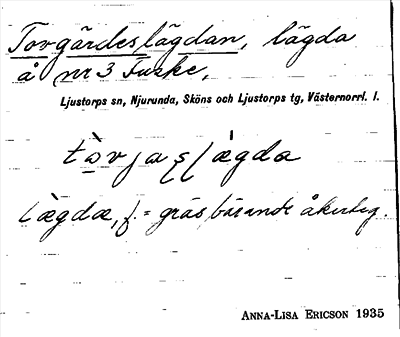 Torgärdeslägdan, lägda
å nr 3 Fuske,
Ljustorps sn, Njurunda, Sköns och Ljustorps tg, Västernorrl. l.
lægdæ, f. = gräsbärande åkerteg.
ANNA-LISA ERICSON 1935